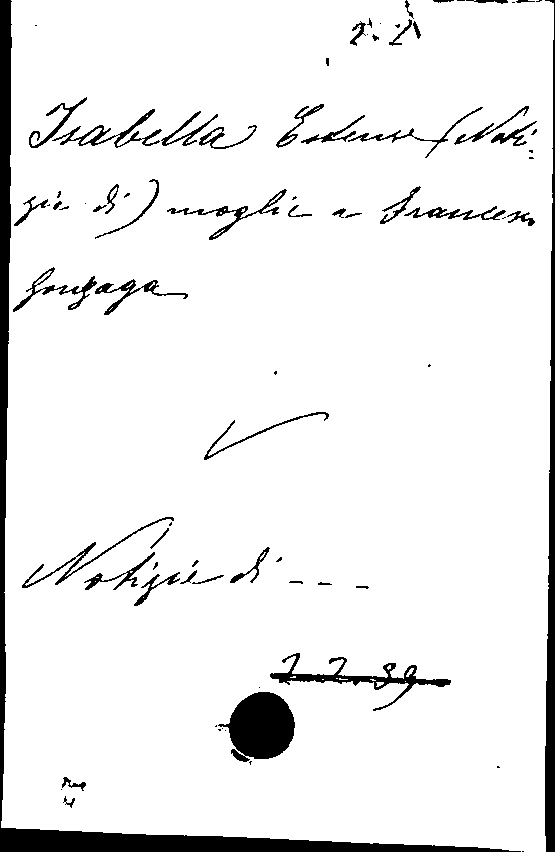 2. 2
Isabella Estense (Noti=
zie di) moglie a Francesco
Gonzaga
Notizie di - - -
2 2. 39